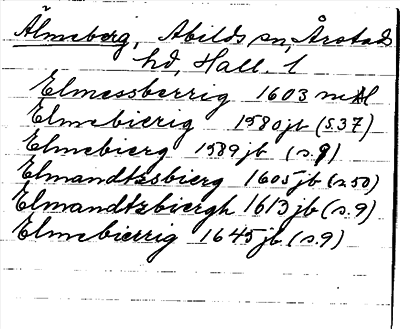 Älmeberg, Abilds sn, Årstads
hd, Hall. l
Elmessberrig 1603 mtl
Elmebierig 1580 jb (s.37)
Elmebierg 1589 jb (s.9)
Elmandtzsbierg 1605 jb (s.50)
Elmandtzbiergh 1613 jb (s.9)
Elmebierrig 1645 jb (s.9)